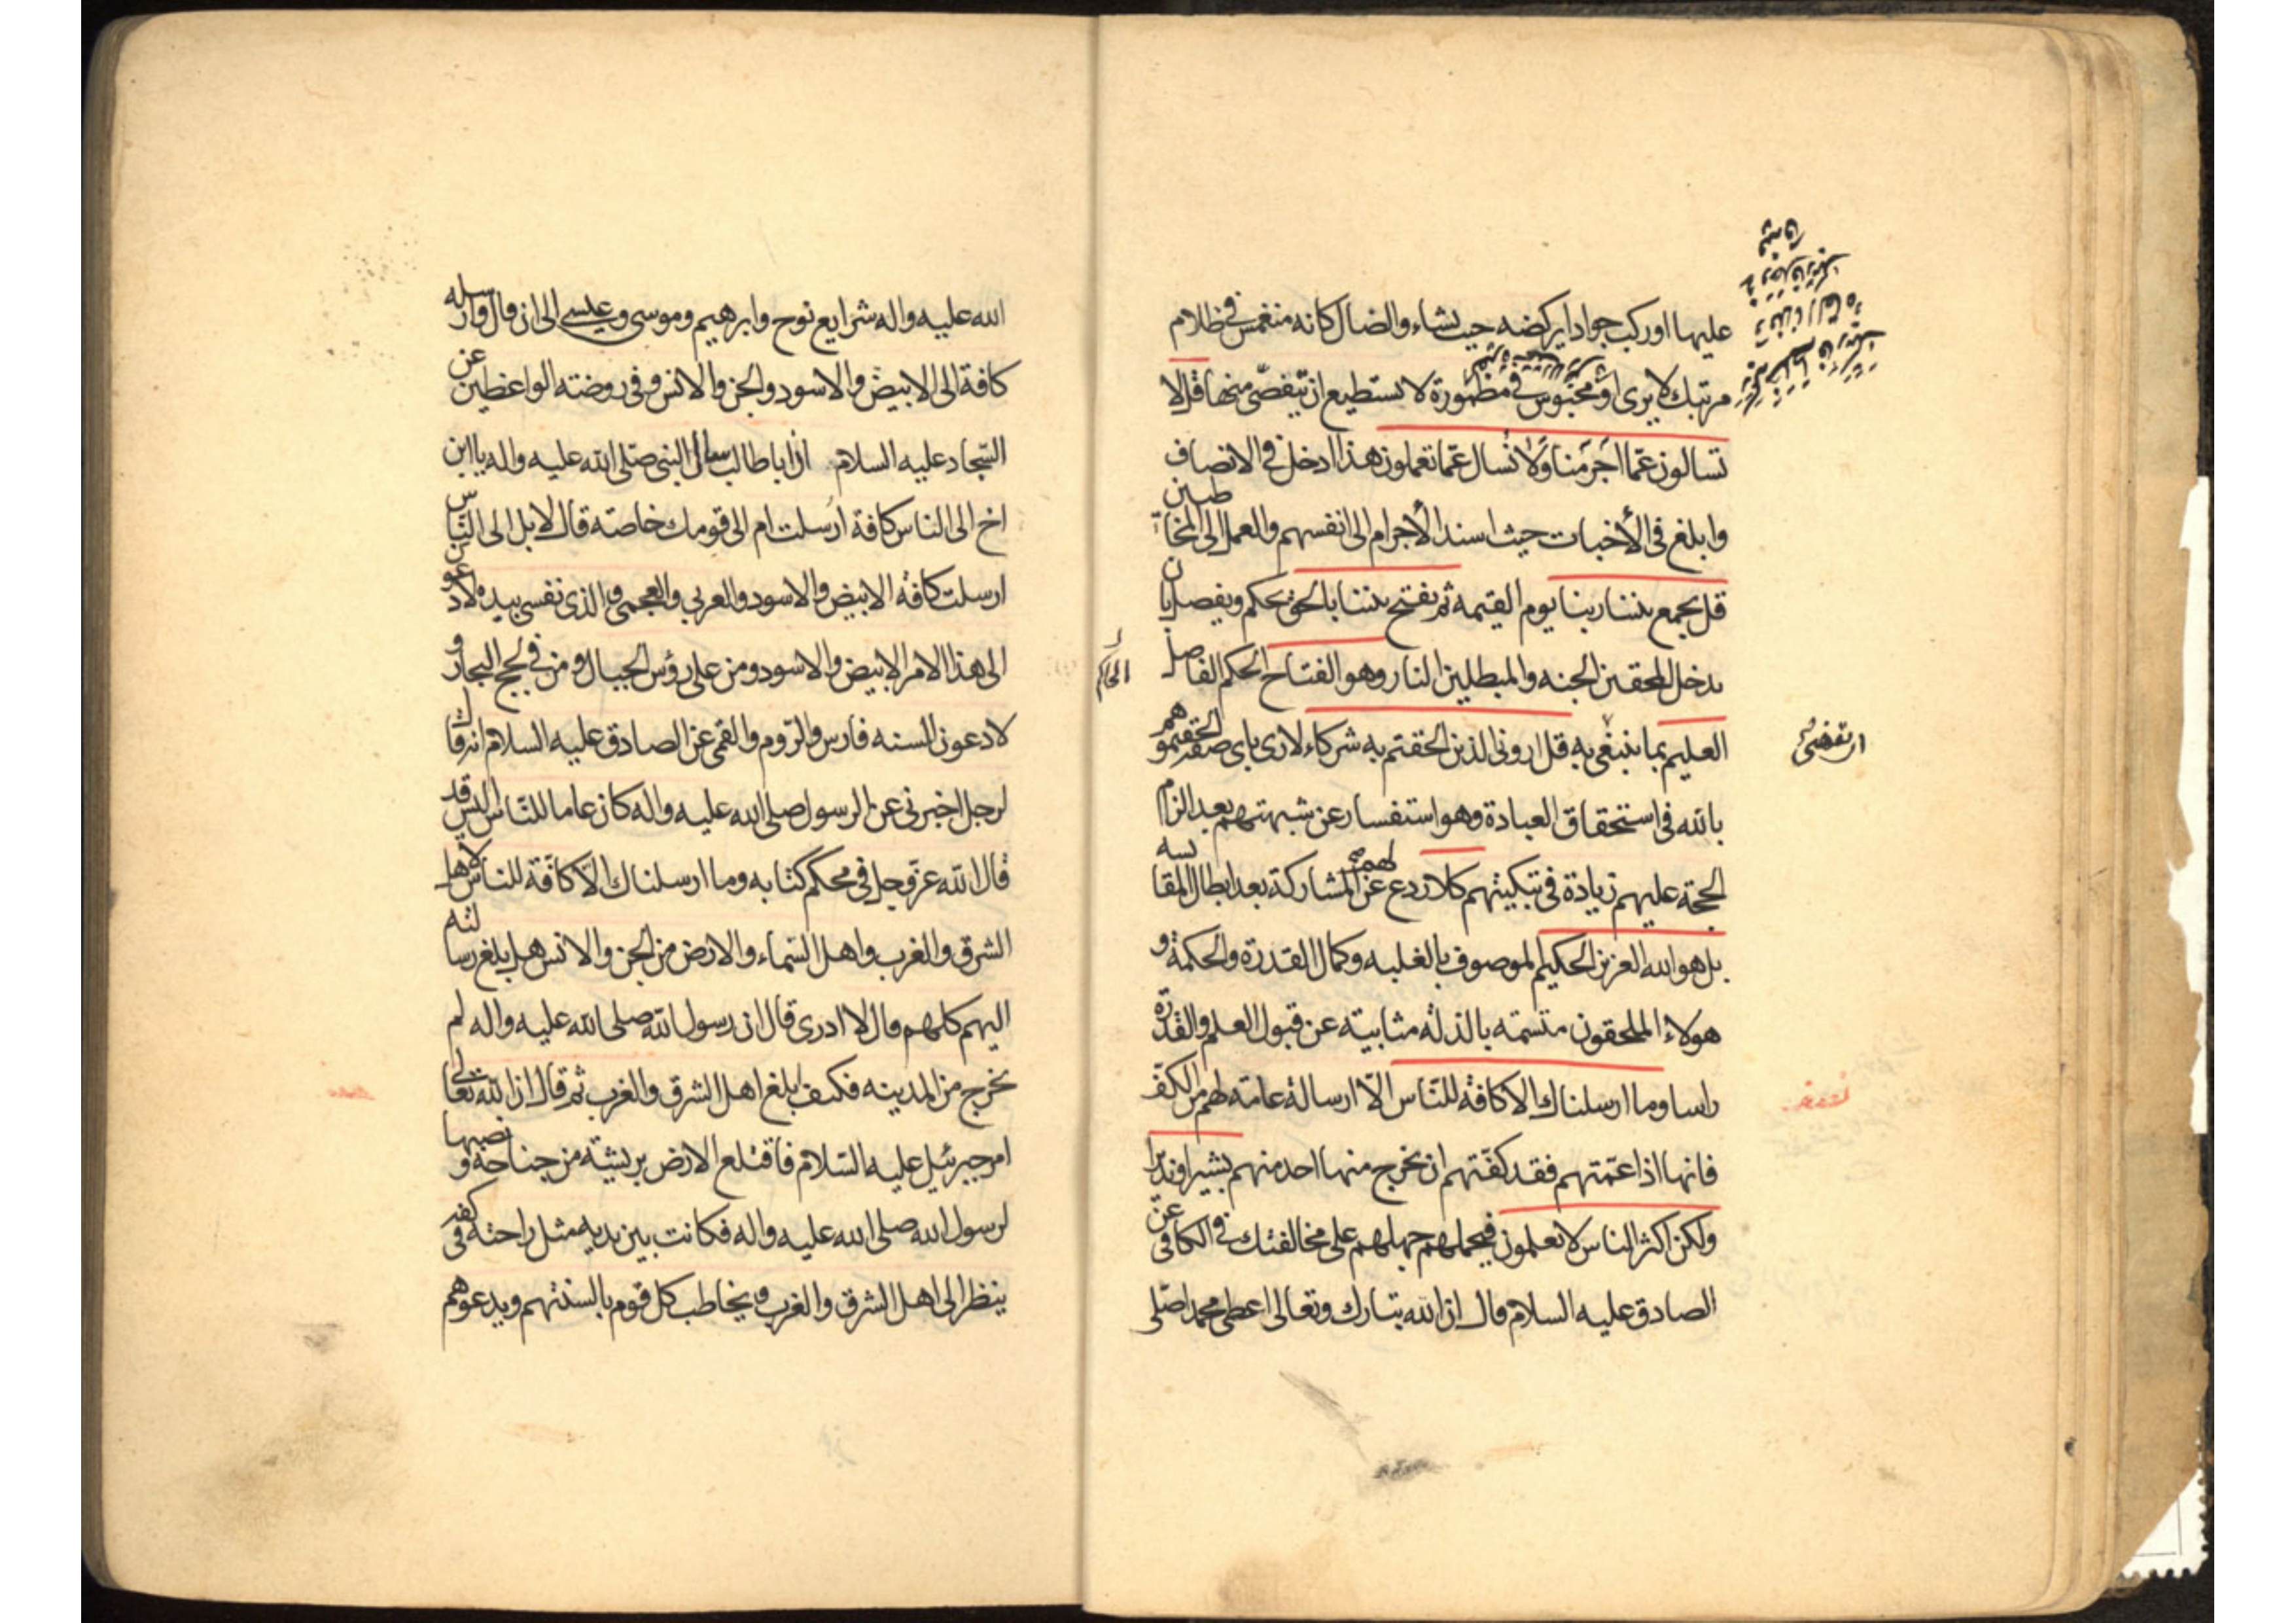 عليها او ركب جوادا يركضه حيث يشاء والضال كانه منغمس في ظلام
مرتبك لا يرى او محبوس في مطمورة لا تستطيع ان يتفصى منها قل لا
تسالون عما اجرمنا ولا نسال عما تعملون هذا ادخل في الانصاف
وابلغ في الأخبات حيث اسند الأجرام الى انفسهم والعمل الى المخاطبين
قل يجمع بيننا ربنا يوم القيمه ثم يفتح بيننا بالحق يحكم ويفصل بان
يدخل المحقين الجنه والمبطلين النار وهو الفتاح الحكم الفاصل
الحاكم
العليم بما ينبغى به قل اروني الذين الحقتم به شركاء لارى باى صفه الحقتموهم
ان يقضى
بالله في استحقاق العبادة وهو استفسار عن شبهتهم بعد الزام
الحجة عليهم زيادة في تبكيتهم كلا ردع لهم عن المشاركة بعد ابطال المقايسه
بل هو الله العزيز الحكيم الموصوف بالغلبه وكمال القدرة والحكمة و
هولاء الملحقون متسمه بالذلة متابيته عن قبول العلم والقدرة
راسا وما ارسلناك الا كافة للناس الا ارسالة عامة لهم من الكف
فانها اذا عمتهم فقد كفتهم ان يخرج منها احد منهم بشيرا ونذيرا
ولكن اكثر الناس لا يعلمون فيحملهم جهلهم على مخالفتك في الكافي عن
الصادق عليه السلام قال ان الله تبارك وتعالى اعطى محمدا صلى
الله عليه واله شرايع نوح وابرهيم وموسى وعيسى الى ان قال وارسله
كافة الى الابيض والاسود والجن والانس و في روضته الواعظين عن
السجاد عليه السلام ان ابا طالب سال النبى صلى الله عليه واله يا ابن
اخ الى الناس كافة ارسلت ام الى قومك خاصة قال لا بل الى الناس
ارسلت كافة الابيض والاسود والعربي والعجمي والذي نفسي بيده لادعون
الى هذا الامر الابيض والاسود ومن على رؤس الجبال ومن في لجج البحار و
لادعون السنه فارس والروم والقمى عن الصادق عليه السلام انه قال
لرجل اخبرني عن الرسول صلى الله عليه واله كان عاما للناس اليس قد
قال الله عز وجل في محكم كتابه وما ارسلناك الا كافة للناس لاهل
الشرق والغرب واهل السماء والارض من الجن والانس هل بلغ رسالته
اليهم كلهم قال لا ادرى قال ان رسول الله صلى الله عليه واله لم
يخرج من المدينه فكيف ابلغ اهل الشرق والغرب ثم قال ان الله تعالى
امر جبرئيل عليه السلام فاقتلع الارض بريشة من جناحه ونصبها
لرسول الله صلى الله عليه واله فكانت بين يديه مثل راحته في كفه
ينظر الى اهل الشرق والغرب و يخاطب كل قوم بالسنتهم ويدعوهم